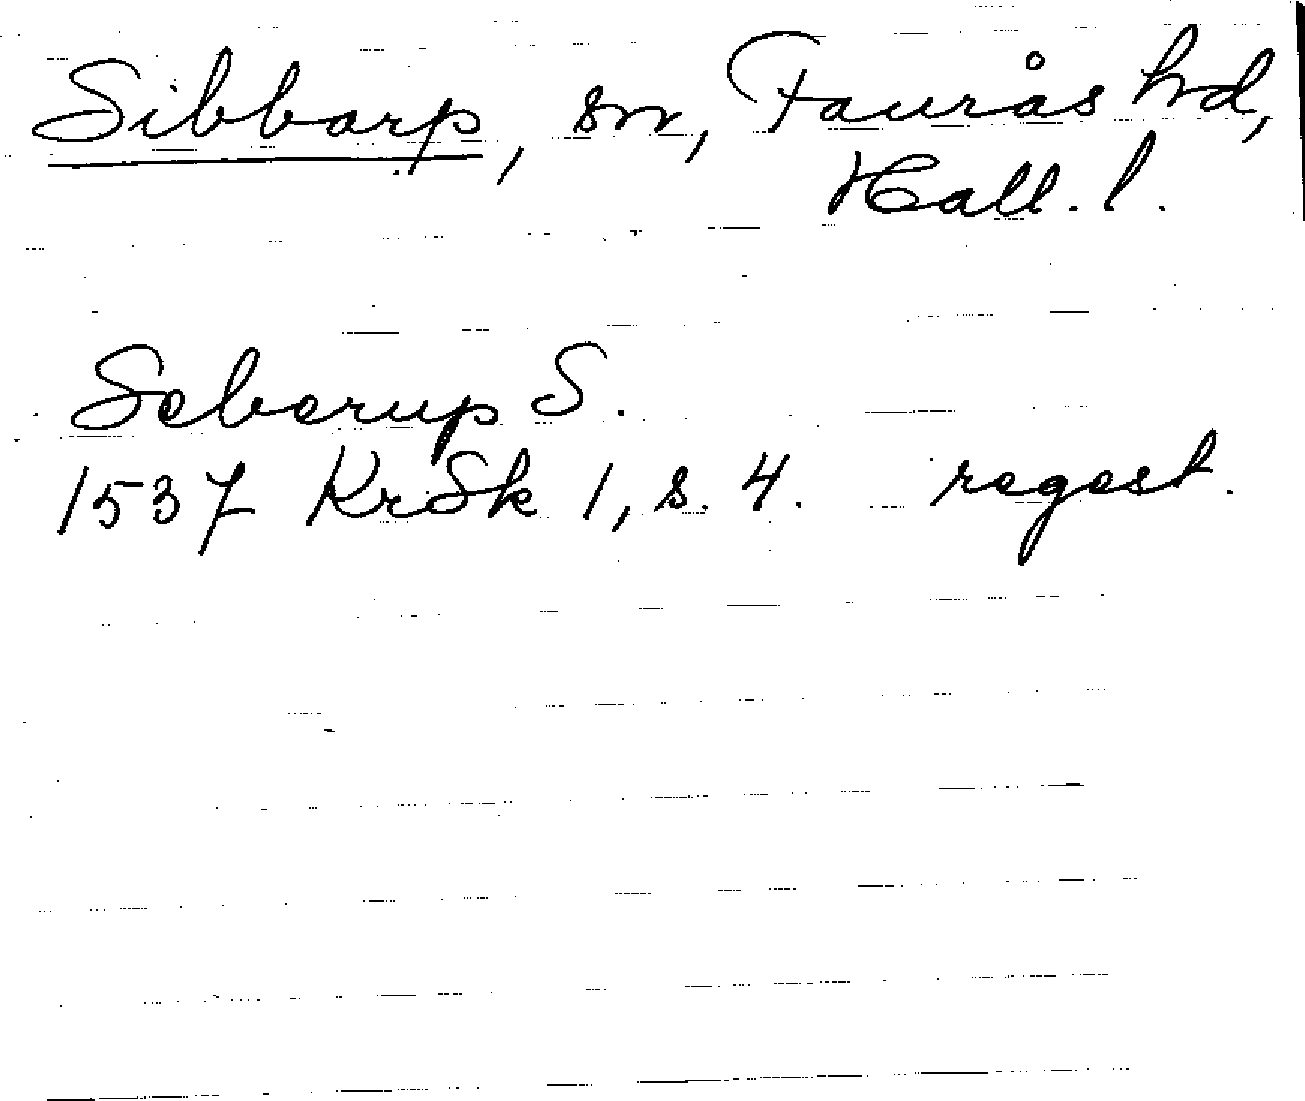 Sibbarp, sn, Faurås hd,
Hall. l.
Seberup S.
1537 KrSk 1, s. 4. regest.